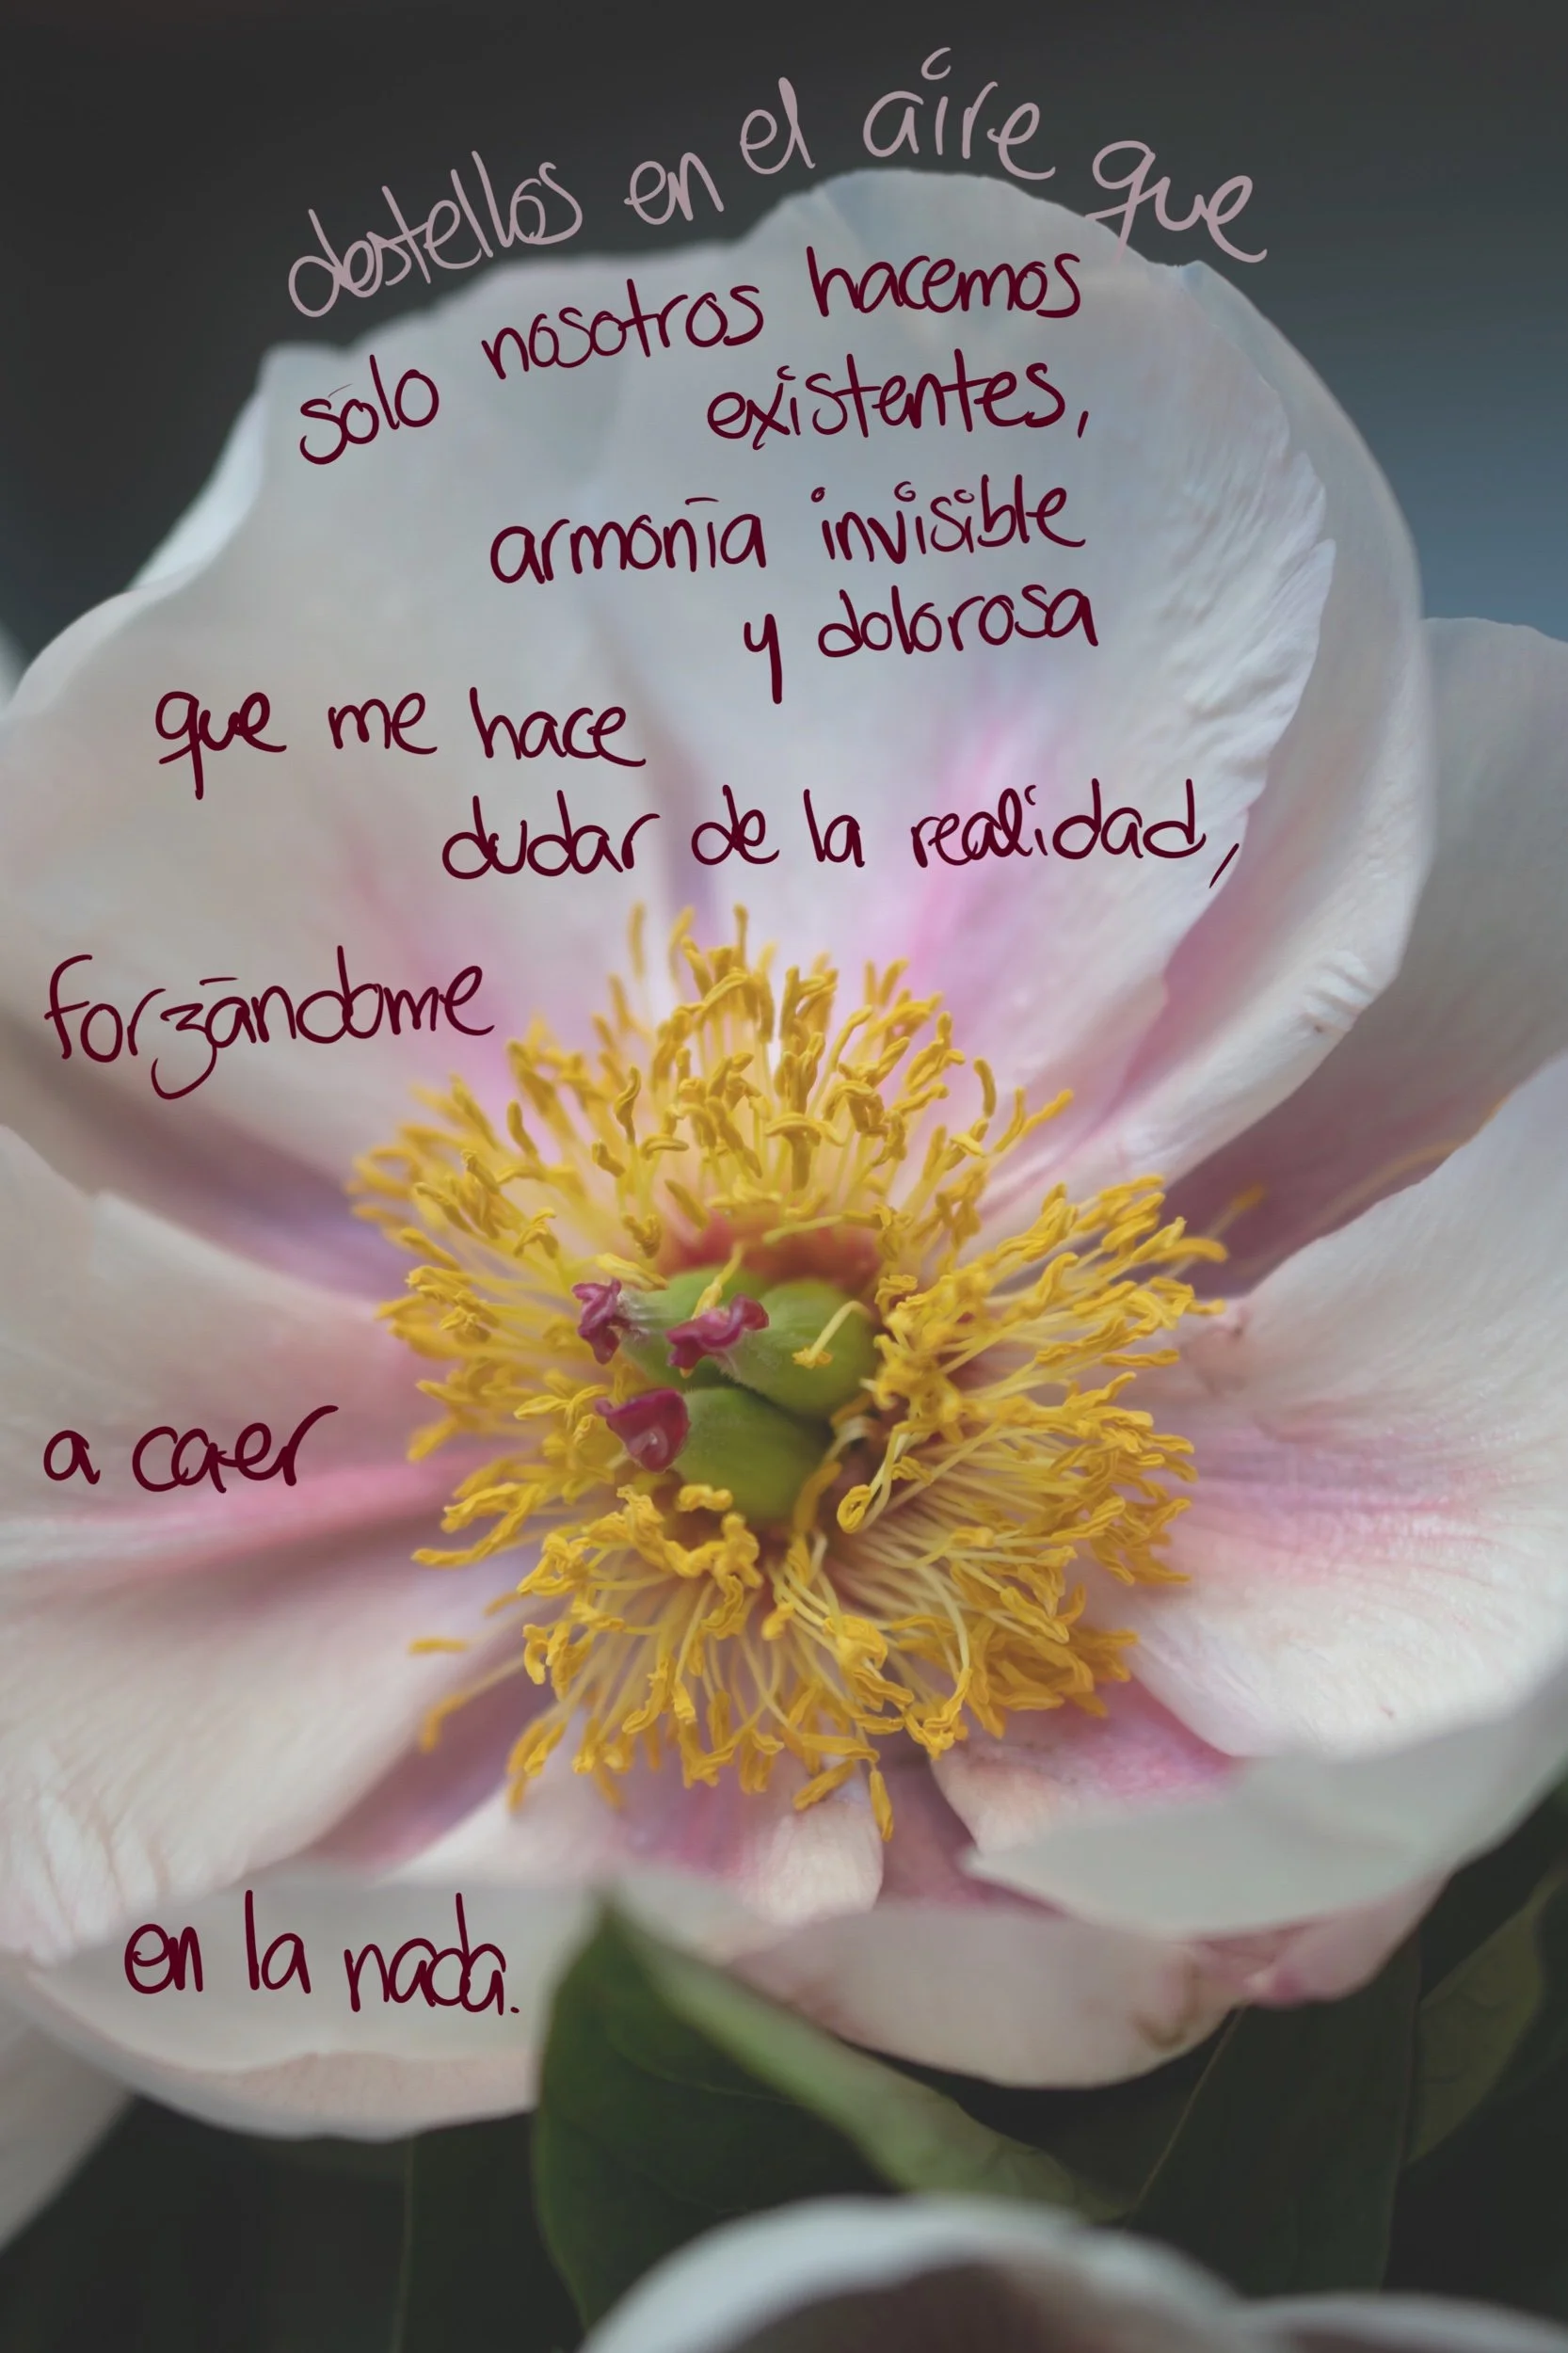 destellos en el aire que
sólo nosotros hacemos
existentes,
armonía invisible
y dolorosa
que me hace
dudar de la realidad,
forzándome
a caer
en la nada.